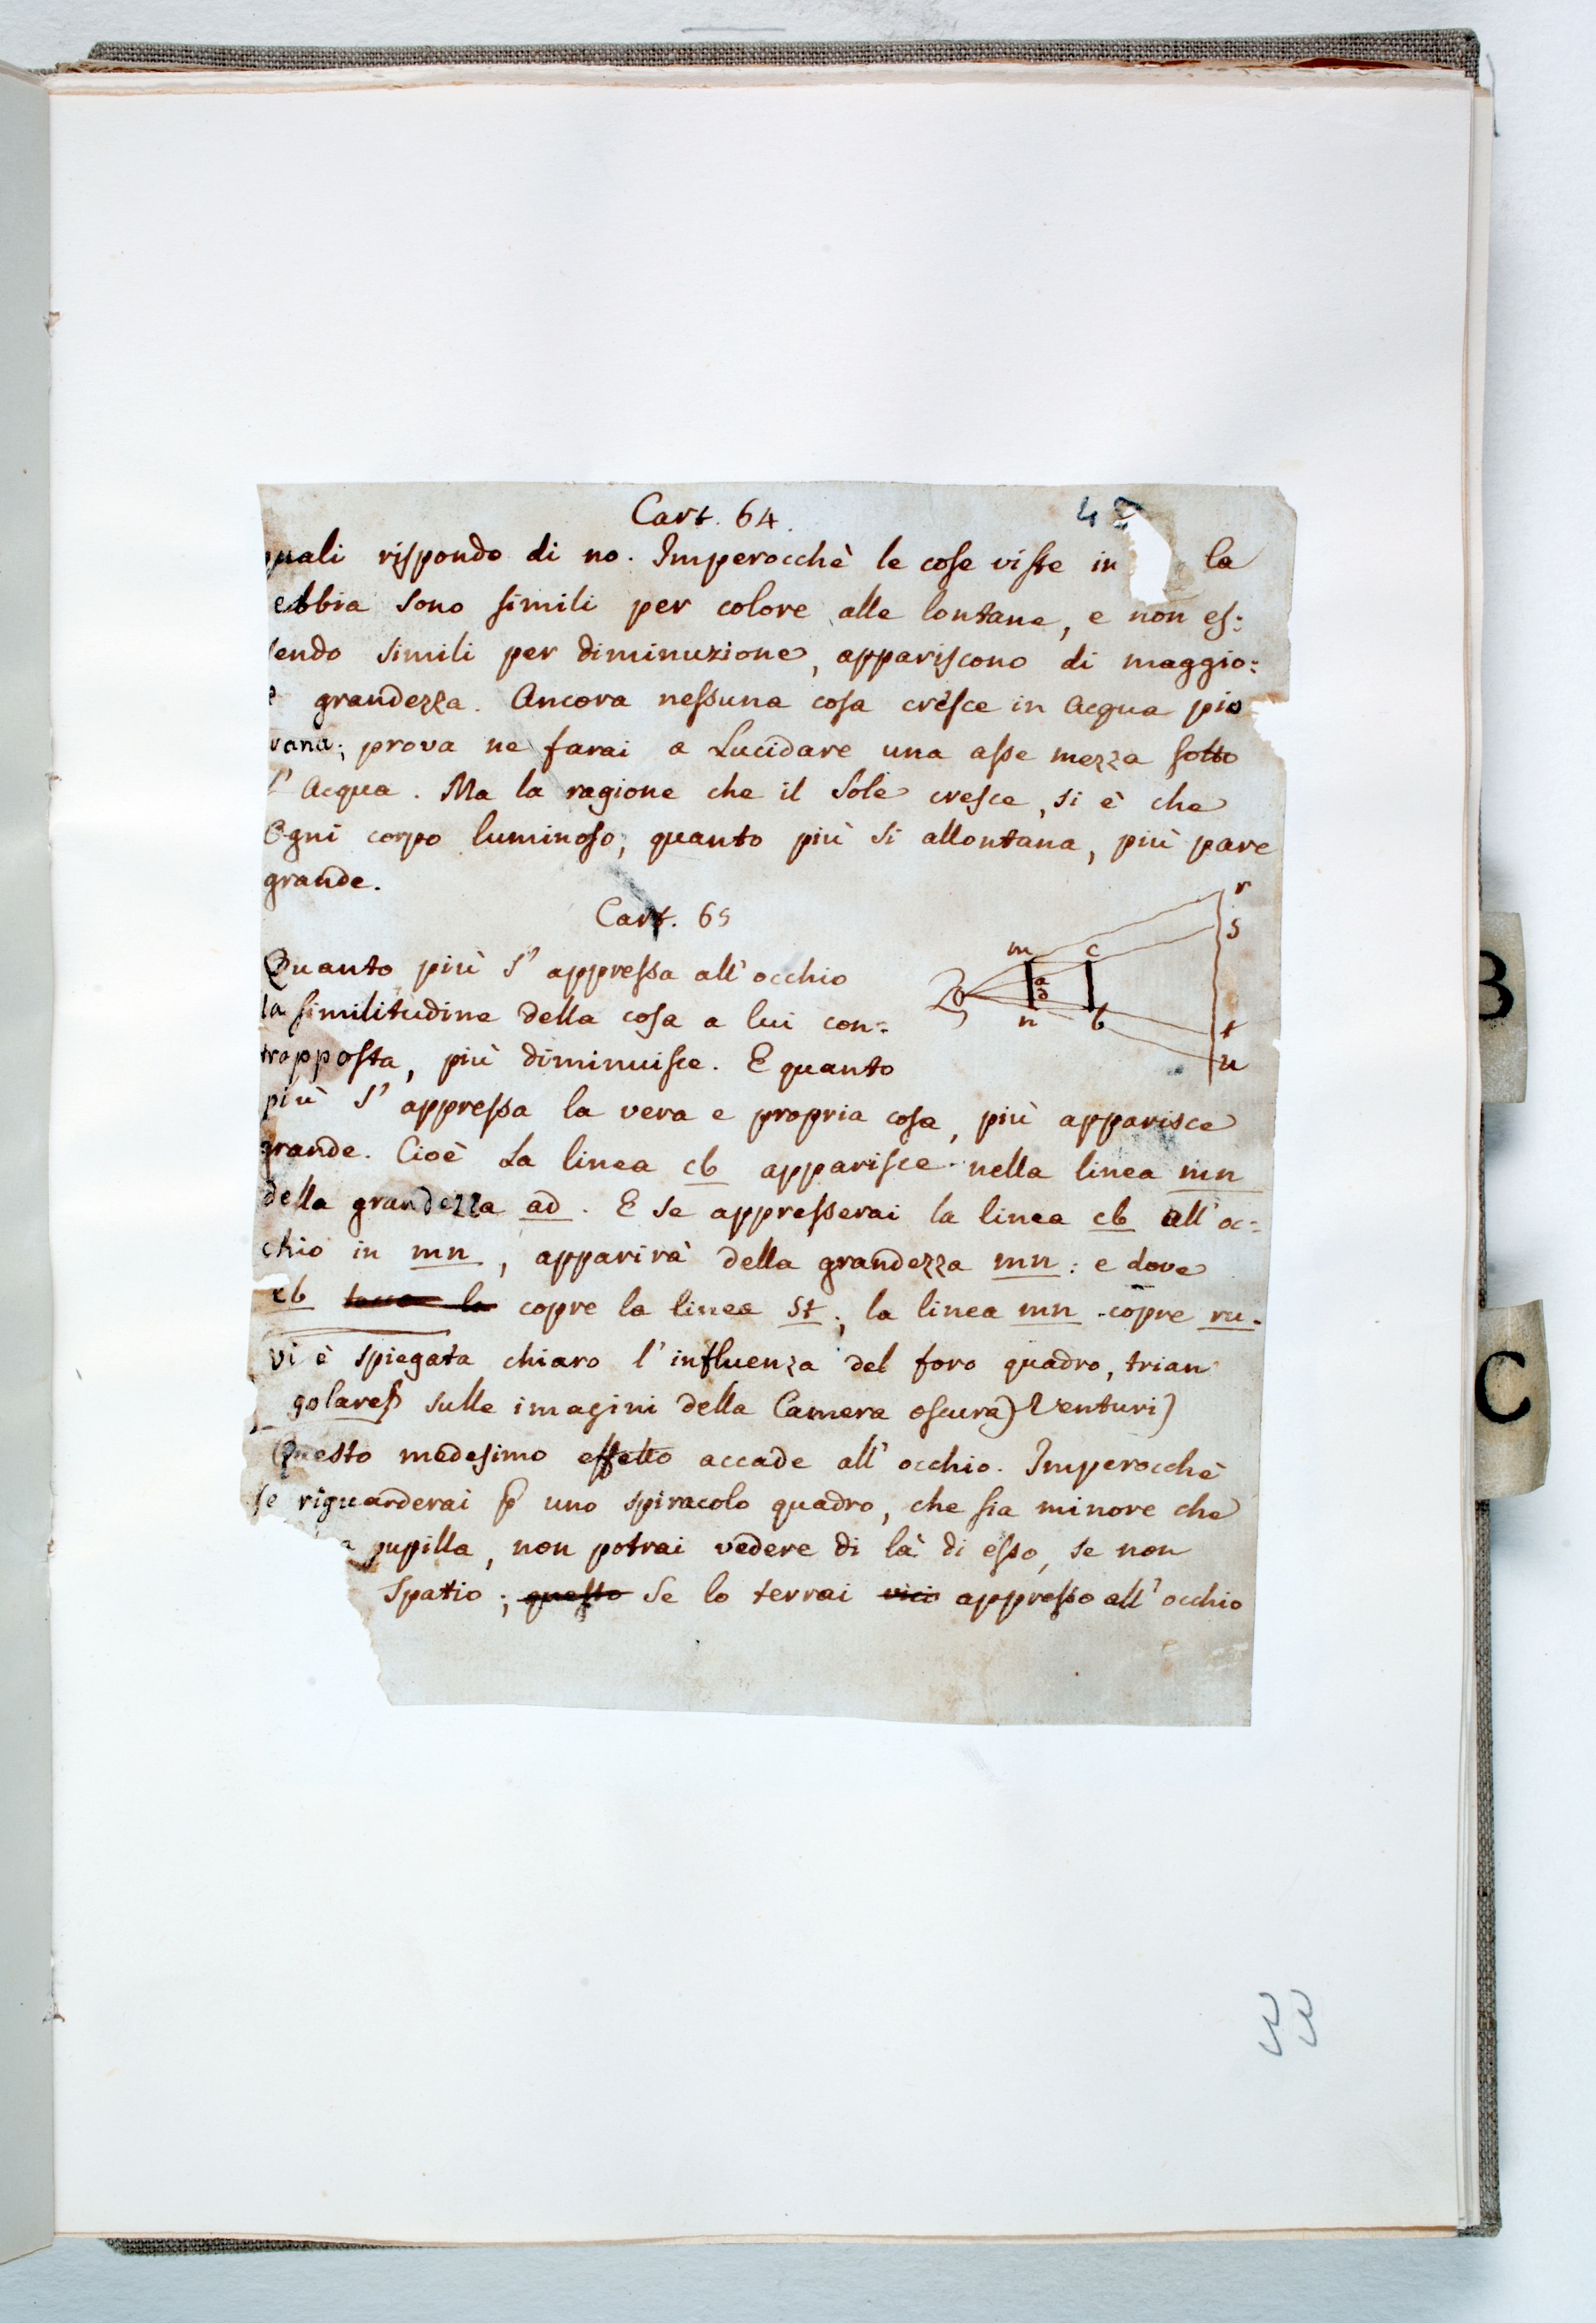 Cart. 64.
quali rispondo di no. Imperocchè le cose viste in la
ebbia sono simili per colore alle lontane, e non es:
sendo simili per diminuzione, appariscono di maggio:
e grandezza. Ancora nessuna cosa cresce in Acqua pio
vana; prova ne farai a Lucidare una asse mezza sotto
l'Acqua. Ma la ragione che il Sole cresce, si è che
Ogni corpo luminoso, quanto più si allontana, più pare
grande.
Cart. 65
r
s
m c
a
d
n b
t
u
Quanto più s'appressa all'occhio
la similitudine della cosa a lui con:
trapposta, più diminuisce. E quanto
più s'appressa la vera e propria cosa, più apparisce
grande. Cioè La linea cb apparisce nella linea mn
della grandezza ad. E se appresserai la linea cb all'oc:
chio in mn, apparirà della grandezza mn: e dove
cb tocca la copre la linea st; la linea mn copre ru.
vi è spiegata chiaro l'influenza del foro quadro, trian
golare sulle imagini della Camera oscura) Venturi)
Questo medesimo effetto accade all'occhio. Imperocchè
se riguarderai p uno spiracolo quadro, che sia minore che
a pupilla, non potrai vedere di là di esso, se non
spatio; questo Se lo terrai vici appresso all'occhio
33
B
C